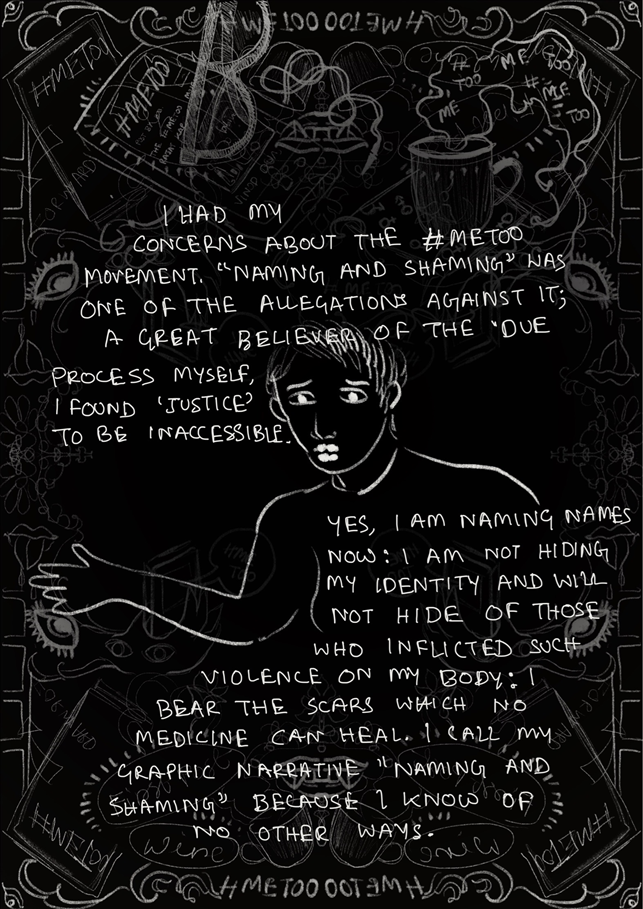 #METOO OOTEM#
#METOO
#METOO
#
TOO
ME
TOO
ME
#
ME
TOO
I HAD MY
CONCERNS ABOUT THE #METOO
MOVEMENT. "NAMING AND SHAMING" WAS
ONE OF THE ALLEGATIONS AGAINST IT;
A GREAT BELIEVER OF THE 'DUE
PROCESS MYSELF,
I FOUND 'JUSTICE'
TO BE INACCESSIBLE.
YES, I AM NAMING NAMES
NOW: I AM NOT HIDING
MY IDENTITY AND WILL
NOT HIDE OF THOSE
WHO INFLICTED SUCH
VIOLENCE ON MY BODY: I
BEAR THE SCARS WHICH NO
MEDICINE CAN HEAL. I CALL MY
GRAPHIC NARRATIVE "NAMING AND
SHAMING" BECAUSE I KNOW OF
NO OTHER WAYS.
#METOO
#METOO
#METOO OOTEM#